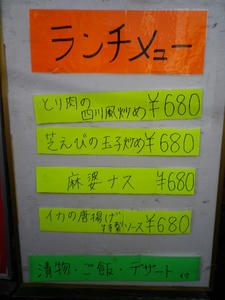 ランチメニュー
とり肉の
四川風炒め ¥680
芝えびの玉子炒め ¥680
麻婆ナス ¥680
イカの唐揚げ
ソース ¥680
漬物・ご飯・デザート付